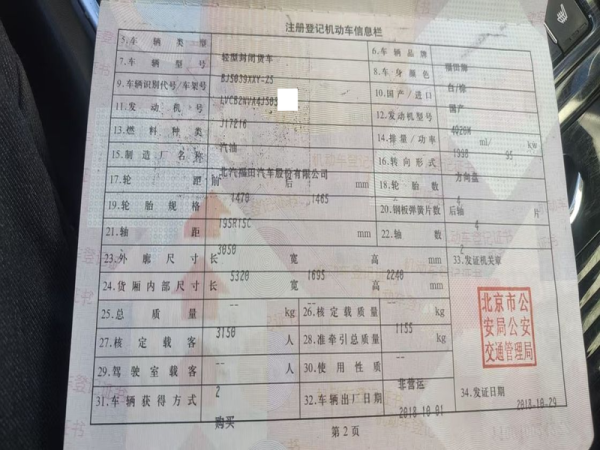 注册登记机动车信息栏
5.车辆类型 轻型封闭货车 6.车辆品牌 福田牌
7.车辆型号 BJ5039XXY-Z5 8.车身颜色 白/棕
9.车辆识别代号/车架号 10.国产/进口 国产
11.发动机号 J17216 12.发动机型号
13.燃料种类 汽油 14.排量/功率 1998 ml/ 95 kw
15.制造厂名称 北汽福田汽车股份有限公司 16.转向形式 方向盘
17.轮距 前 1470 后 1465 mm 18.轮胎数 4
19.轮胎规格 195R15C 20.钢板弹簧片数 后轴 4 片
21.轴距 3050 mm 22.轴数
23.外廓尺寸 长 5320 宽 1695 高 2240 mm 33.发证机关章
24.货厢内部尺寸 长 -- 宽 -- 高 -- mm
25.总质量 3150 kg 26.核定载质量 1155 kg
27.核定载客 -- 人 28.准牵引总质量 -- kg
29.驾驶室载客 2 人 30.使用性质 非营运
31.车辆获得方式 购买 32.车辆出厂日期 2018-10-01 34.发证日期 2018-10-29
北京市公
安局公安
交通管理局
第2页